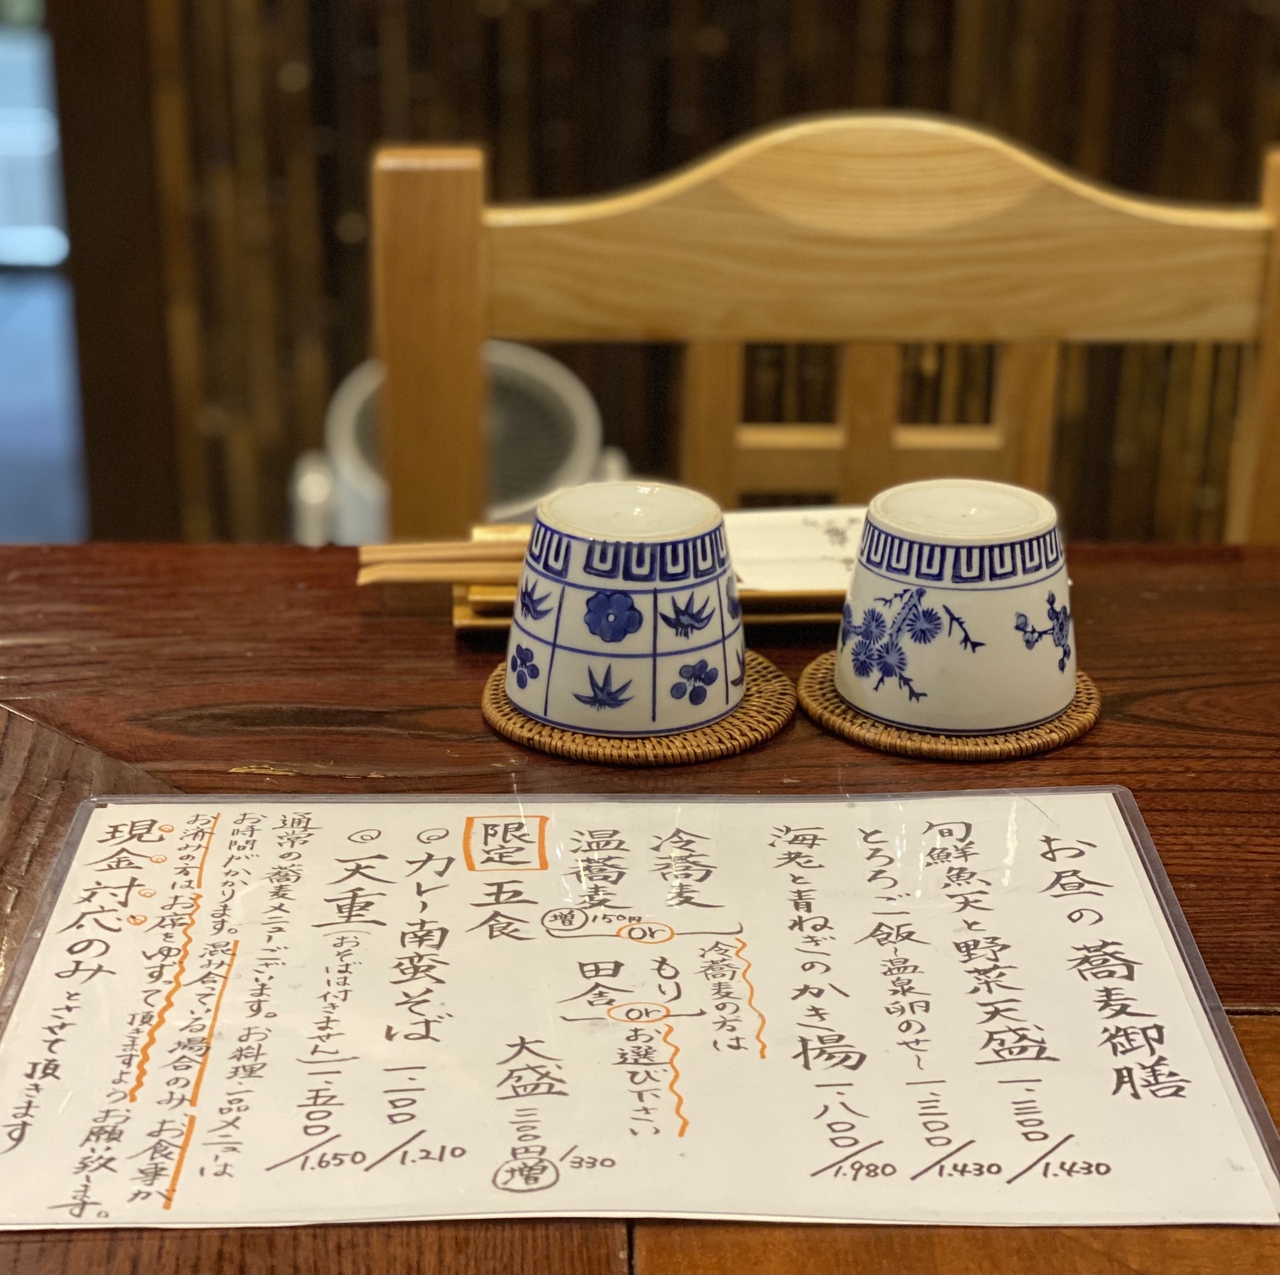 お昼の蕎麦御膳
旬鮮魚天と野菜天盛 一、三〇〇/1.430
とろろご飯〜温泉卵のせ〜 一、三〇〇/1.430
海老と青ねぎのかき揚 一、八〇〇/1.980
冷蕎麦 or 温蕎麦 増150円
冷蕎麦の方は
もり or 田舎
お選び下さい
大盛 三〇〇円増/330
限定 五食
◎カレー南蛮そば 一、一〇〇/1.210
◎天重(おそばは付きません) 一、五〇〇/1.650
通常の蕎麦メニューございます。お料理一品メニューは
お時間がかかります。混み合っている場合のみ、お食事が
お済みの方はお席をゆずって頂きますようお願い致します。
現金対応のみとさせて頂きます